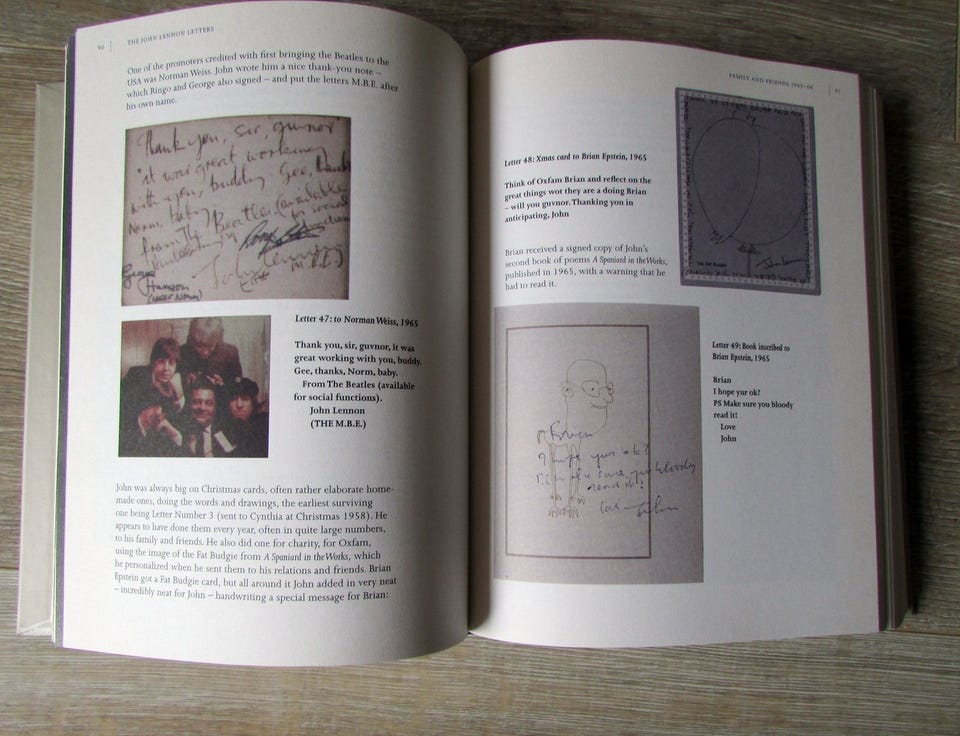 THE JOHN LENNON LETTERS
One of the promoters credited with first bringing the Beatles to the
USA was Norman Weiss. John wrote him a nice thank-you note –
which Ringo and George also signed – and put the letters M.B.E. after
his own name.
Thank you, sir, guvnor
it was great working
with you, buddy. Gee, thanks
Norm, baby.
from The Beatles (available
for social
functions)
John Lennon
M.B.E.)
Letter 47: to Norman Weiss, 1965
Thank you, sir, guvnor, it was
great working with you, buddy.
Gee, thanks, Norm, baby.
From The Beatles (available
for social functions).
John Lennon
(THE M.B.E.)
John was always big on Christmas cards, often rather elaborate home-
made ones, doing the words and drawings, the earliest surviving
one being Letter Number 3 (sent to Cynthia at Christmas 1958). He
appears to have done them every year, often in quite large numbers,
to his family and friends. He also did one for charity, for Oxfam,
using the image of the Fat Budgie from A Spaniard in the Works, which
he personalized when he sent them to his relations and friends. Brian
Epstein got a Fat Budgie card, but all around it John added in very neat
– incredibly neat for John – handwriting a special message for Brian:
FAMILY AND FRIENDS 1965–66
Letter 48: Xmas card to Brian Epstein, 1965
Think of Oxfam Brian and reflect on the
great things wot they are a doing Brian
– will you guvnor. Thanking you in
anticipating, John
The Fat Budgie
John Lennon
Brian received a signed copy of John's
second book of poems A Spaniard in the Works,
published in 1965, with a warning that he
had to read it.
Brian
I hope yur ok?
make sure you bloody
read it!
John
Letter 49: Book inscribed to
Brian Epstein, 1965
Brian
I hope yur ok?
PS Make sure you bloody
read it!
Love
John